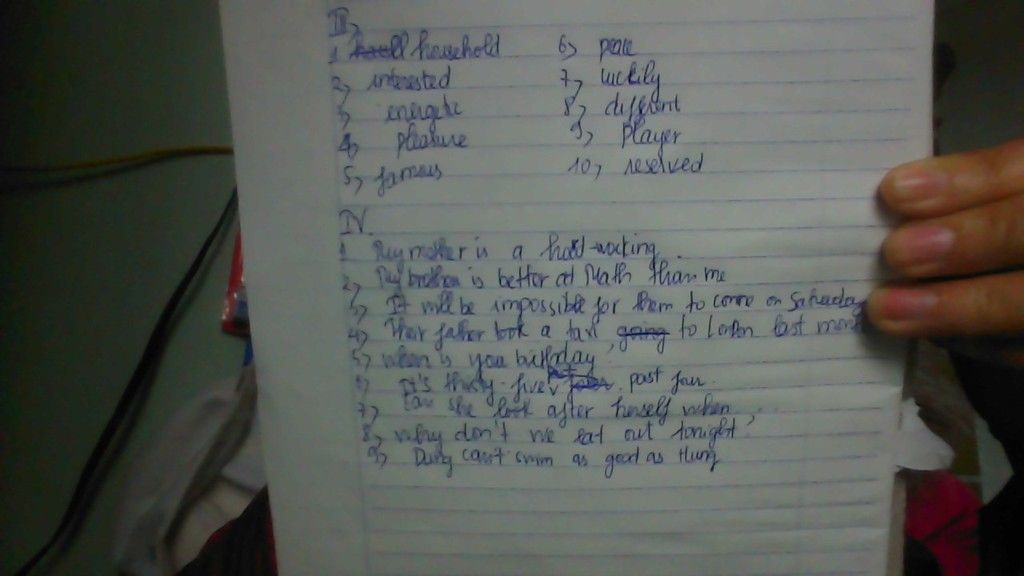 III,
1 household 6, peace
2, interested 7, luckily
3, energetic 8, different
4, pleasure 9, player
5, famous 10, reserved
IV.
1 My mother is a hard-working.
2, My brother is better at Math than me
3, It will be impossible for them to come on Saturday
4, Their father took a taxi to London last month
5, when is you birthday
6, It's thirty-five past four.
7, Can she look after herself when...
8, why don't we eat out tonight?
9, Dung can't swim as good as Hung